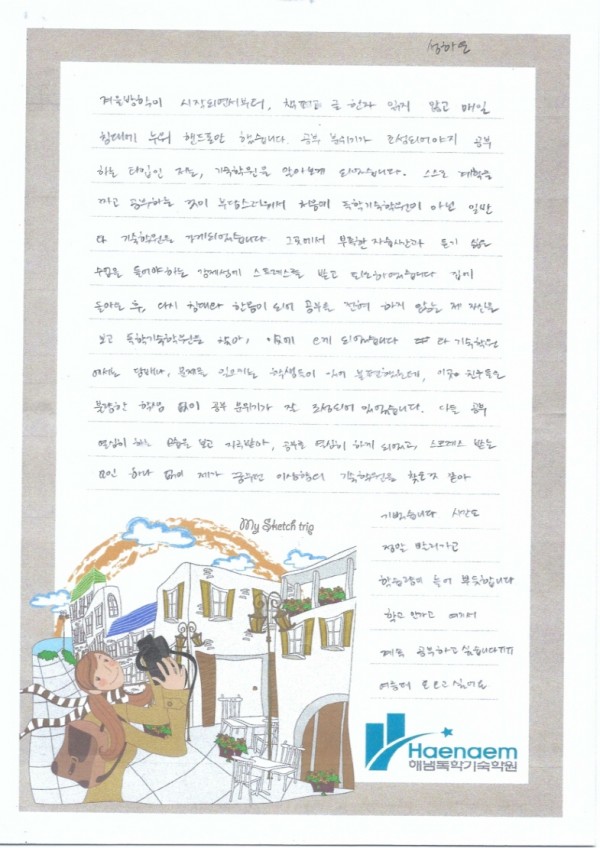 성하은
겨울방학이 시작되면서부터, 책펴고 글 한자 읽지 않고 매일
침대에 누워 핸드폰만 했습니다. 공부 분위기가 조성되어야지 공부
하는 타입인 저는, 기숙학원을 알아보게 되었습니다. 스스로 계획을
짜고 공부하는 것이 부담스러워서 처음에 독학기숙학원이 아닌 일반
타 기숙학원을 가게되었습니다. 그곳에서 부족한 자습시간과 듣기 싫은
수업을 들어야하는 강제성에 스트레스를 받고 퇴소하였습니다 집에
돌아온 후, 다시 침대와 한몸이 되어 공부를 전혀 하지 않는 제 자신을
보고 독학기숙학원을 찾아, 오게 되었습니다 타 기숙학원
에서는 담배나, 문제를 일으키는 학생들이 있어 불편했는데, 이곳은 친구들은
불량한 학생 없이 공부 분위기가 잘 조성되어 있었습니다. 다들 공부
열심히 하는 모습을 보고 자극받아, 공부를 열심히 하게 되었고, 스트레스 받는
요인 하나 없이 제가 꿈꾸던 이상향의 기숙학원을 찾은것 같아
기뻤습니다 시간도
정말 빨리가고
학습량도 늘어 뿌듯합니다
학교 안가고 여기서
계속 공부하고 싶습니다ㅠㅠ
여름에 또 오고 싶어요
My Sketch trip
Haenaem
해냄독학기숙학원